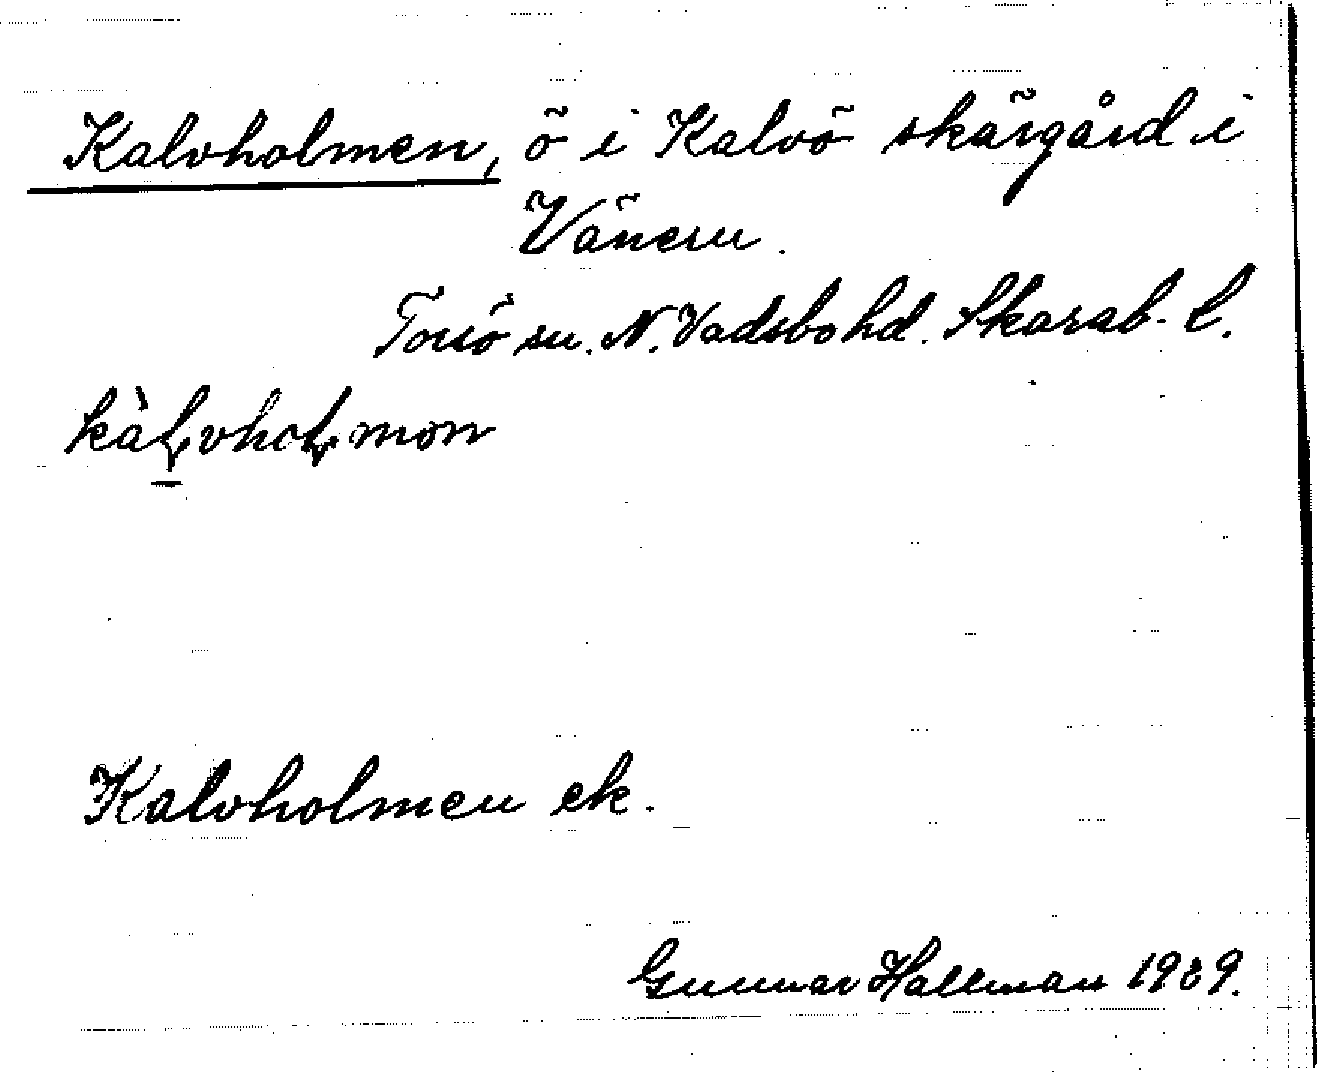 Kalvholmen, ö i Kalvö skärgård i
Vänern.
Torsö sn. N. Vadsbo hd. Skarab. l.
Kalvholmen ek.
Gunnar Hallman 1939.